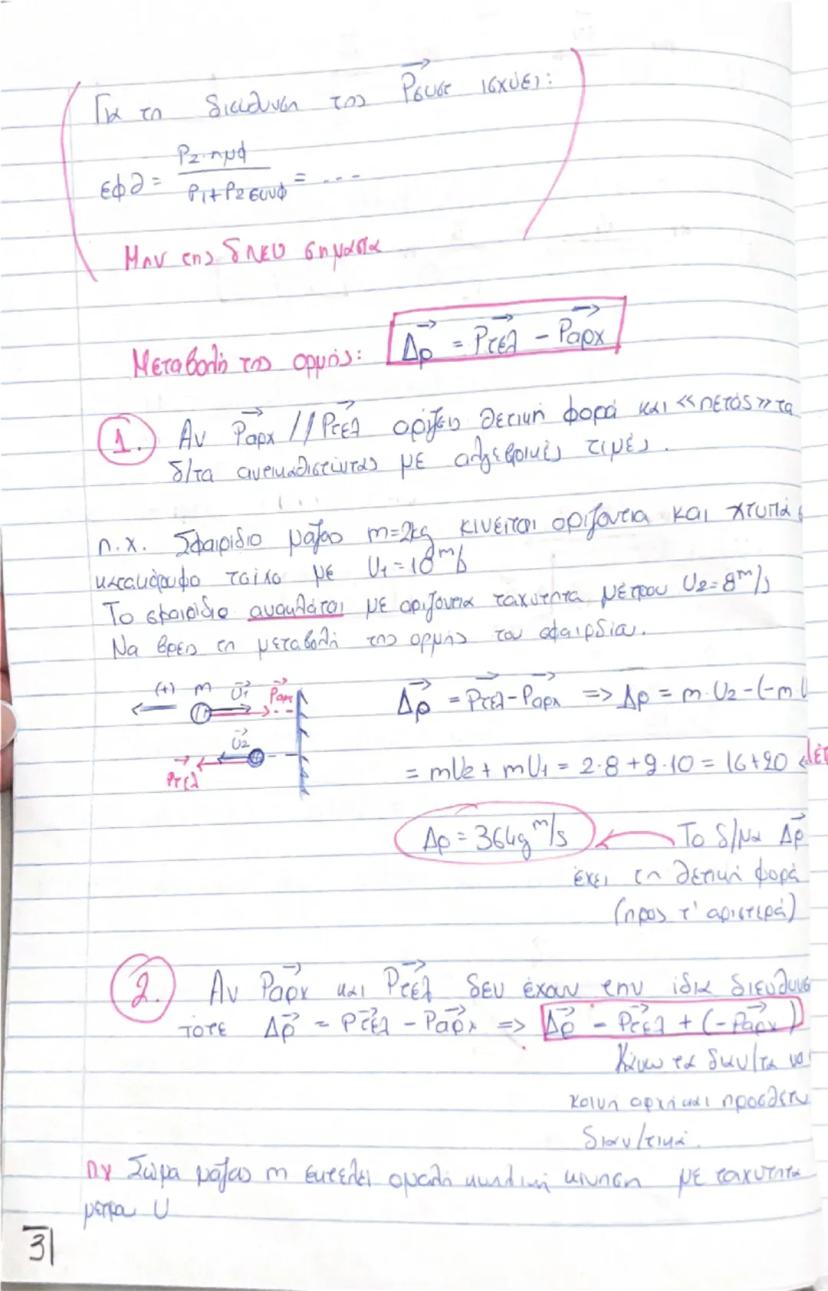 Για τη διεύθυνση της Pσυσ ισχύει:
εφθ = P2·ημφ / P1+P2συνφ = ...
Μην της δΝΕυ σημασία
Μεταβολή της ορμής: Δp = Pτελ - Pαρχ
1. Αν Pαρχ // Pτελ ορίζεις θετική φορά και «πετάς» τα
δ/τα αντικαθιστώντας με αλγεβρικές τιμές.
π.χ. Σφαιρίδιο μάζας m=2kg κινείται οριζόντια και χτυπά
κατακόρυφο τοίχο με U1=10 m/s
Το σφαιρίδιο ανακλάται με οριζόντια ταχύτητα μέτρου U2=8 m/s
Να βρεις τη μεταβολή της ορμής του σφαιριδίου.
(+) m U1 Pαρχ
Δp = Pτελ-Pαρχ => Δp = m·U2-(-mU
U2
Pτελ
= mU2 + mU1 = 2·8+2·10 = 16+20
Δp = 36kg m/s
Το δ/μα Δp
έχει τη θετική φορά
(προς τ' αριστερά)
2. Αν Pαρχ και Pτελ δεν έχουν την ίδια διεύθυνσ
τότε Δp = Pτελ - Pαρχ => Δp = Pτελ + (-Pαρχ)
Κάνω τα διαν/τα με
κοινή αρχή και προσθέτω
διαν/τικά.
πχ Σώμα μάζας m εκτελεί ομαλή κυκλική κίνηση με ταχύτητα
μέτρου U
31